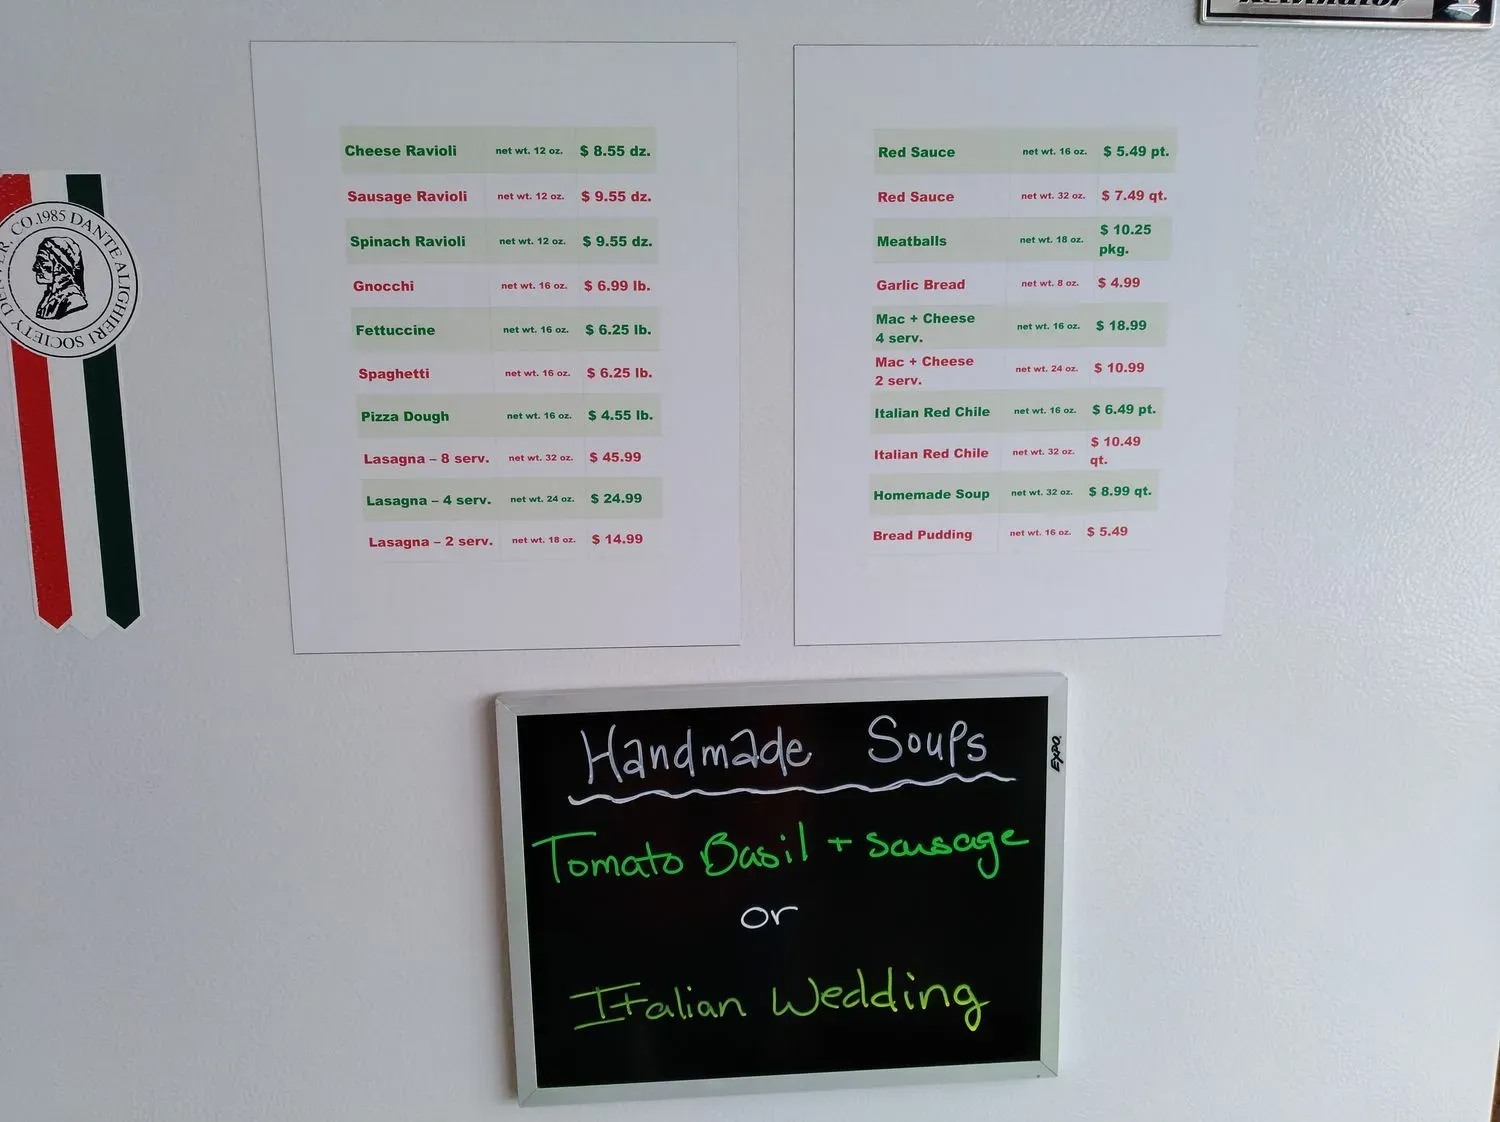 Kelvinator
CO. 1985 DANTE ALIGHIERI SOCIETY DENVER,
Cheese Ravioli net wt. 12 oz. $ 8.55 dz.
Sausage Ravioli net wt. 12 oz. $ 9.55 dz.
Spinach Ravioli net wt. 12 oz. $ 9.55 dz.
Gnocchi net wt. 16 oz. $ 6.99 lb.
Fettuccine net wt. 16 oz. $ 6.25 lb.
Spaghetti net wt. 16 oz. $ 6.25 lb.
Pizza Dough net wt. 16 oz. $ 4.55 lb.
Lasagna – 8 serv. net wt. 32 oz. $ 45.99
Lasagna – 4 serv. net wt. 24 oz. $ 24.99
Lasagna – 2 serv. net wt. 18 oz. $ 14.99
Red Sauce net wt. 16 oz. $ 5.49 pt.
Red Sauce net wt. 32 oz. $ 7.49 qt.
Meatballs net wt. 18 oz. $ 10.25
pkg.
Garlic Bread net wt. 8 oz. $ 4.99
Mac + Cheese
4 serv. net wt. 16 oz. $ 18.99
Mac + Cheese
2 serv. net wt. 24 oz. $ 10.99
Italian Red Chile net wt. 16 oz. $ 6.49 pt.
Italian Red Chile net wt. 32 oz. $ 10.49
qt.
Homemade Soup net wt. 32 oz. $ 8.99 qt.
Bread Pudding net wt. 16 oz. $ 5.49
EXPO
Handmade Soups
Tomato Basil + sausage
or
Italian Wedding